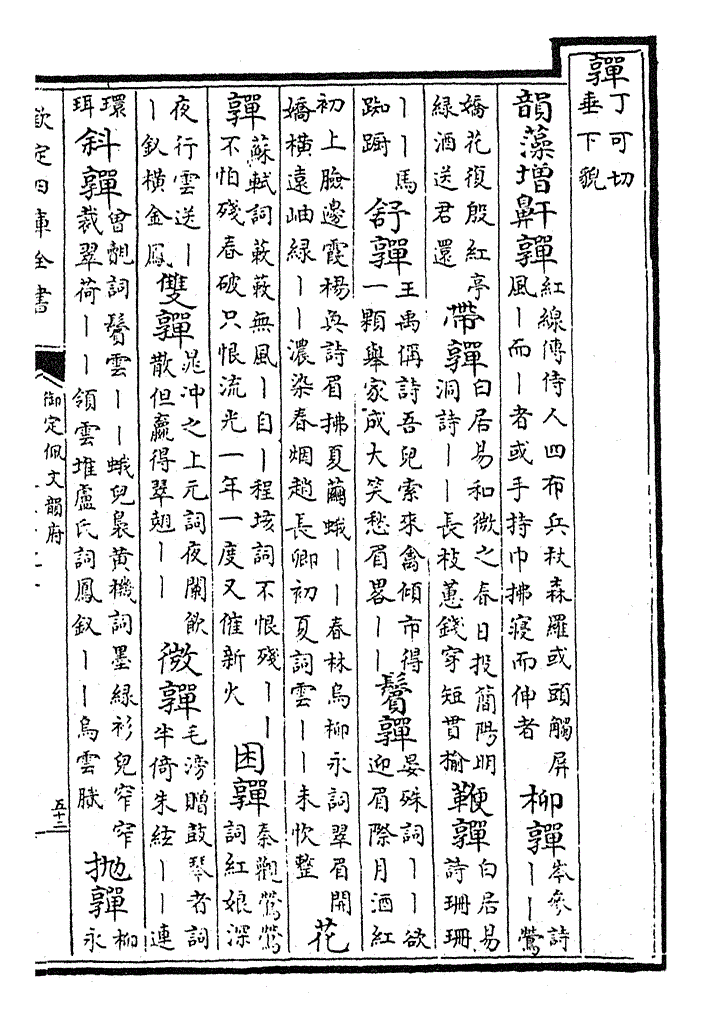 嚲 丁可切
垂下貌
韻藻增鼾嚲 紅線傳侍人四布兵杖森羅或頭觸屏
風丨而丨者或手持巾拂寢而伸者
柳嚲 岑參詩
丨丨鶯
嬌花復殷紅亭
綠酒送君還
帶嚲 白居易和微之春日投簡陽明
洞詩丨丨長枝蕙錢穿短貫榆
鞭嚲 白居易
詩珊珊
丨丨馬
踟蹰
舒嚲 王禹偁詩吾兒索來禽傾市得
一顆舉家成大笑愁眉畧丨丨
鬢嚲 晏殊詞丨丨欲
迎眉際月酒紅
初上臉邊霞楊奐詩眉拂夏繭蛾丨丨春林烏柳永詞翠眉開
嬌橫遠岫綠丨丨濃染春烟趙長卿初夏詞雲丨丨未忺整
花
嚲 蘇軾詞蔌蔌無風丨自丨程垓詞不恨殘丨丨
不怕殘春破只恨流光一年一度又催新火
困嚲 秦觀鶯鶯
詞紅娘深
夜行雲送丨
丨釵橫金鳳
雙嚲 晁沖之上元詞夜闌飲
散但贏得翠翹丨丨
微嚲 毛滂贈鼓琴者詞
半倚朱絃丨丨連
環
珥
斜嚲 曾覿詞鬢雲丨丨蛾兒裊黃機詞墨綠衫兒窄窄
裁翠荷丨丨領雲堆盧氏詞鳳釵丨丨烏雲膩
拋嚲 柳
永
欽定四庫全書
御定佩文韻府
五十二